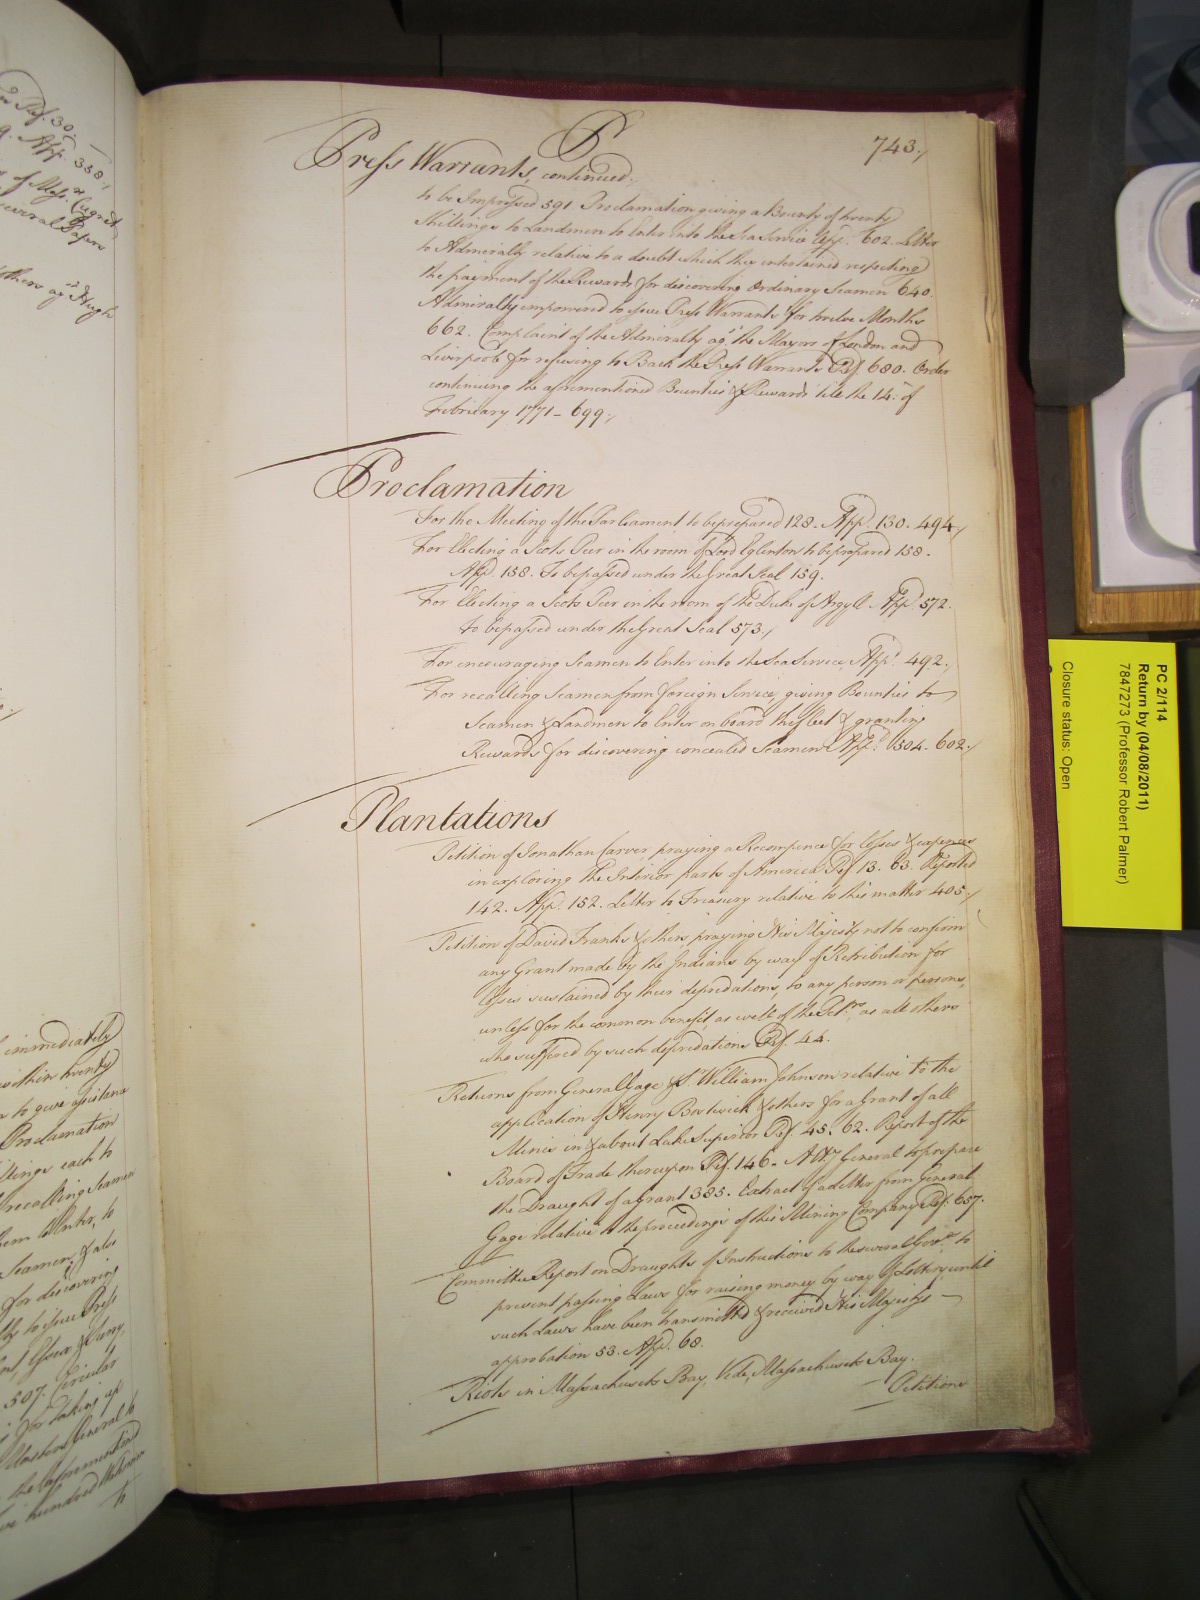 P
743./
Press Warrants, continued.
to be Impressed 591 Proclamation giving a Bounty of twenty
Shillings to Landmen to Enter into the Sea Service App.d 602. Letter
to Admiralty relative to a doubt which they entertained respecting
the payment of the Reward for discovering Ordinary Seamen 640.
Admiralty empowered to issue Press Warrants for twelve Months
662. Complaint of the Admiralty ag.t the Mayors of London and
Liverpoole for refusing to Back the Press Warrants Ref. 680. Order
continuing the aforementioned Bounties & Rewards till the 14.th of
February 1771 – 699./
Proclamation
For the Meeting of the Parliament to be prepared 128. App.d 130. 494./
For Electing a Scots Peer in the room of Lord Eglinton to be prepared 158.
App.d 158. To be passed under the Great Seal 159.
For Electing a Scots Peer in the room of the Duke of Argyll. App.d 572.
to be passed under the Great Seal 573./
For encouraging Seamen to Enter into the Sea Service, App.d 492./
For recalling Seamen from foreign Service, giving Bounties to
Seamen & Landmen to Enter on board the fleet & granting
Rewards for discovering concealed Seamen App.d 504. 602./
Plantations
Petition of Jonathan Carver, praying a Recompence for losses & expences
in exploring the Interior parts of America Ref. 13. 63. Reported
142. App.d 152. Letter to Treasury relative to this matter 405./
Petition of David Franks & others, praying His Majesty not to confirm
any Grant made by the Indians by way of Retribution for
losses sustained by their depredations, to any person or persons,
unless for the common benefit, as well of the Pet.rs as all others
who suffered by such depredations Ref. 44.
Returns from General Gage & S.r William Johnson relative to the
application of Henry Bostwick & others for a Grant of all
Mines in & about Lake Superior Ref. 45. 62. Report of the
Board of Trade thereupon Ref. 146. Att.y General to prepare
the Draught of a Grant 385. Extract of a Letter from General
Gage relative to the proceedings of this Mining Company Ref. 657.
Committee Report on Draughts of Instructions to the several Gov.rs to
prevent passing Laws for raising money by way of Lottery, until
such Laws have been transmitted & received His Majestys
approbation 53. App.d 68.
Riots in Massachusets Bay, Vide, Massachusets Bay.
Petitions
PC 2/114
Return by (04/08/2011)
7847273 (Professor Robert Palmer)
Closure status: Open
immediately
within twenty
to give assistance
Proclamation
recalling Seamen
Seamen, & also
for discovering
507. Circular
for taking up
the aforementioned
to